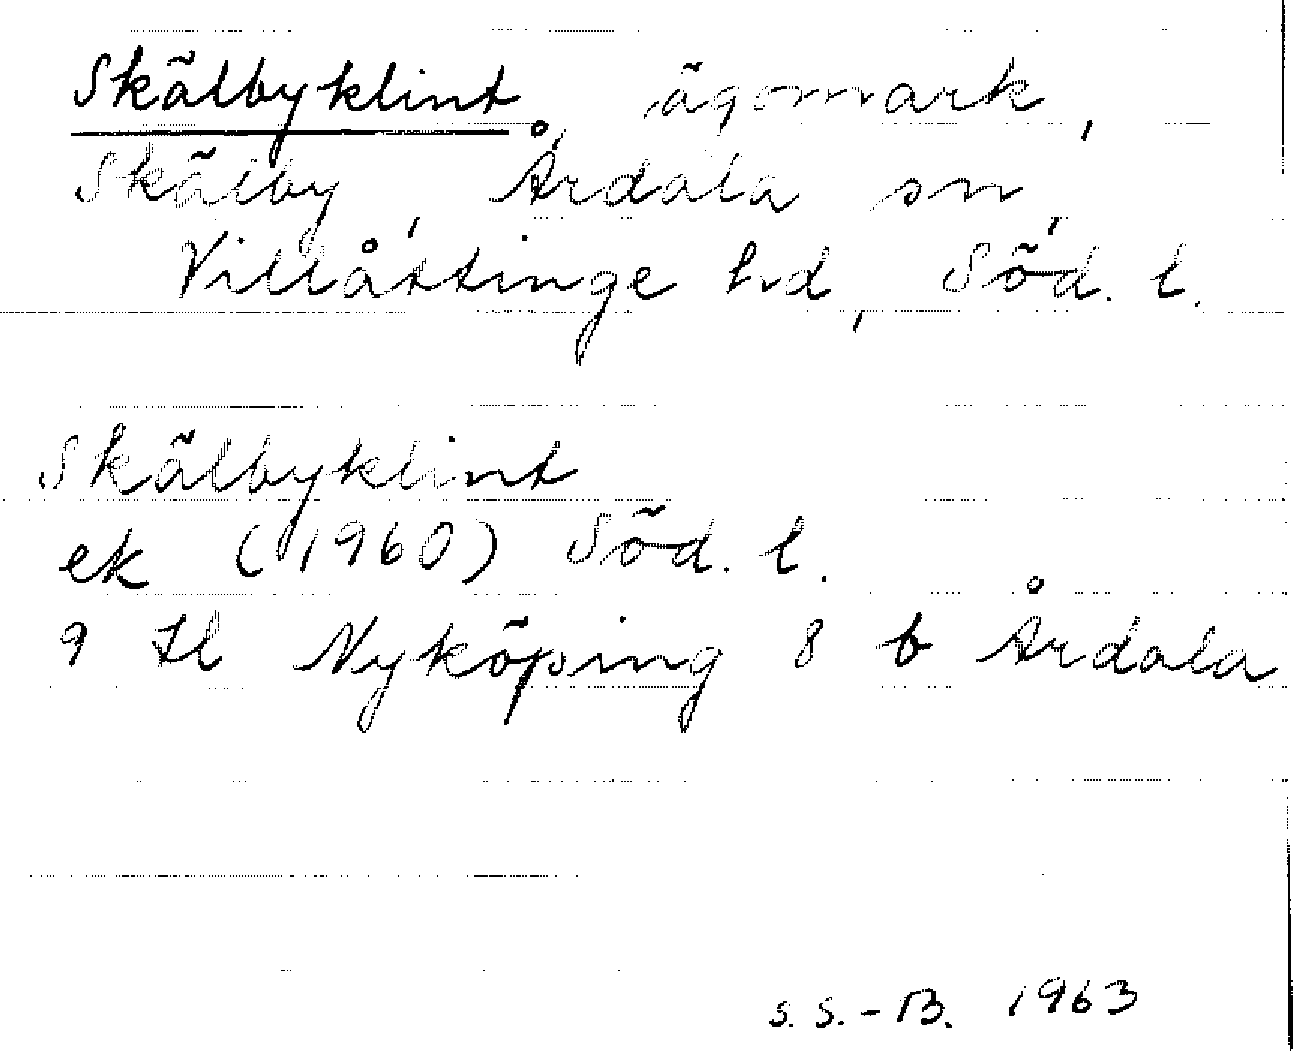 Skälbyklint, ägomark,
Skälby, Årdala sn,
Villåttinge hd, Söd. l.
Skälbyklint
ek (1960) Söd. l.
9 H Nyköping 8 b Årdala
S. S.-B. 1963